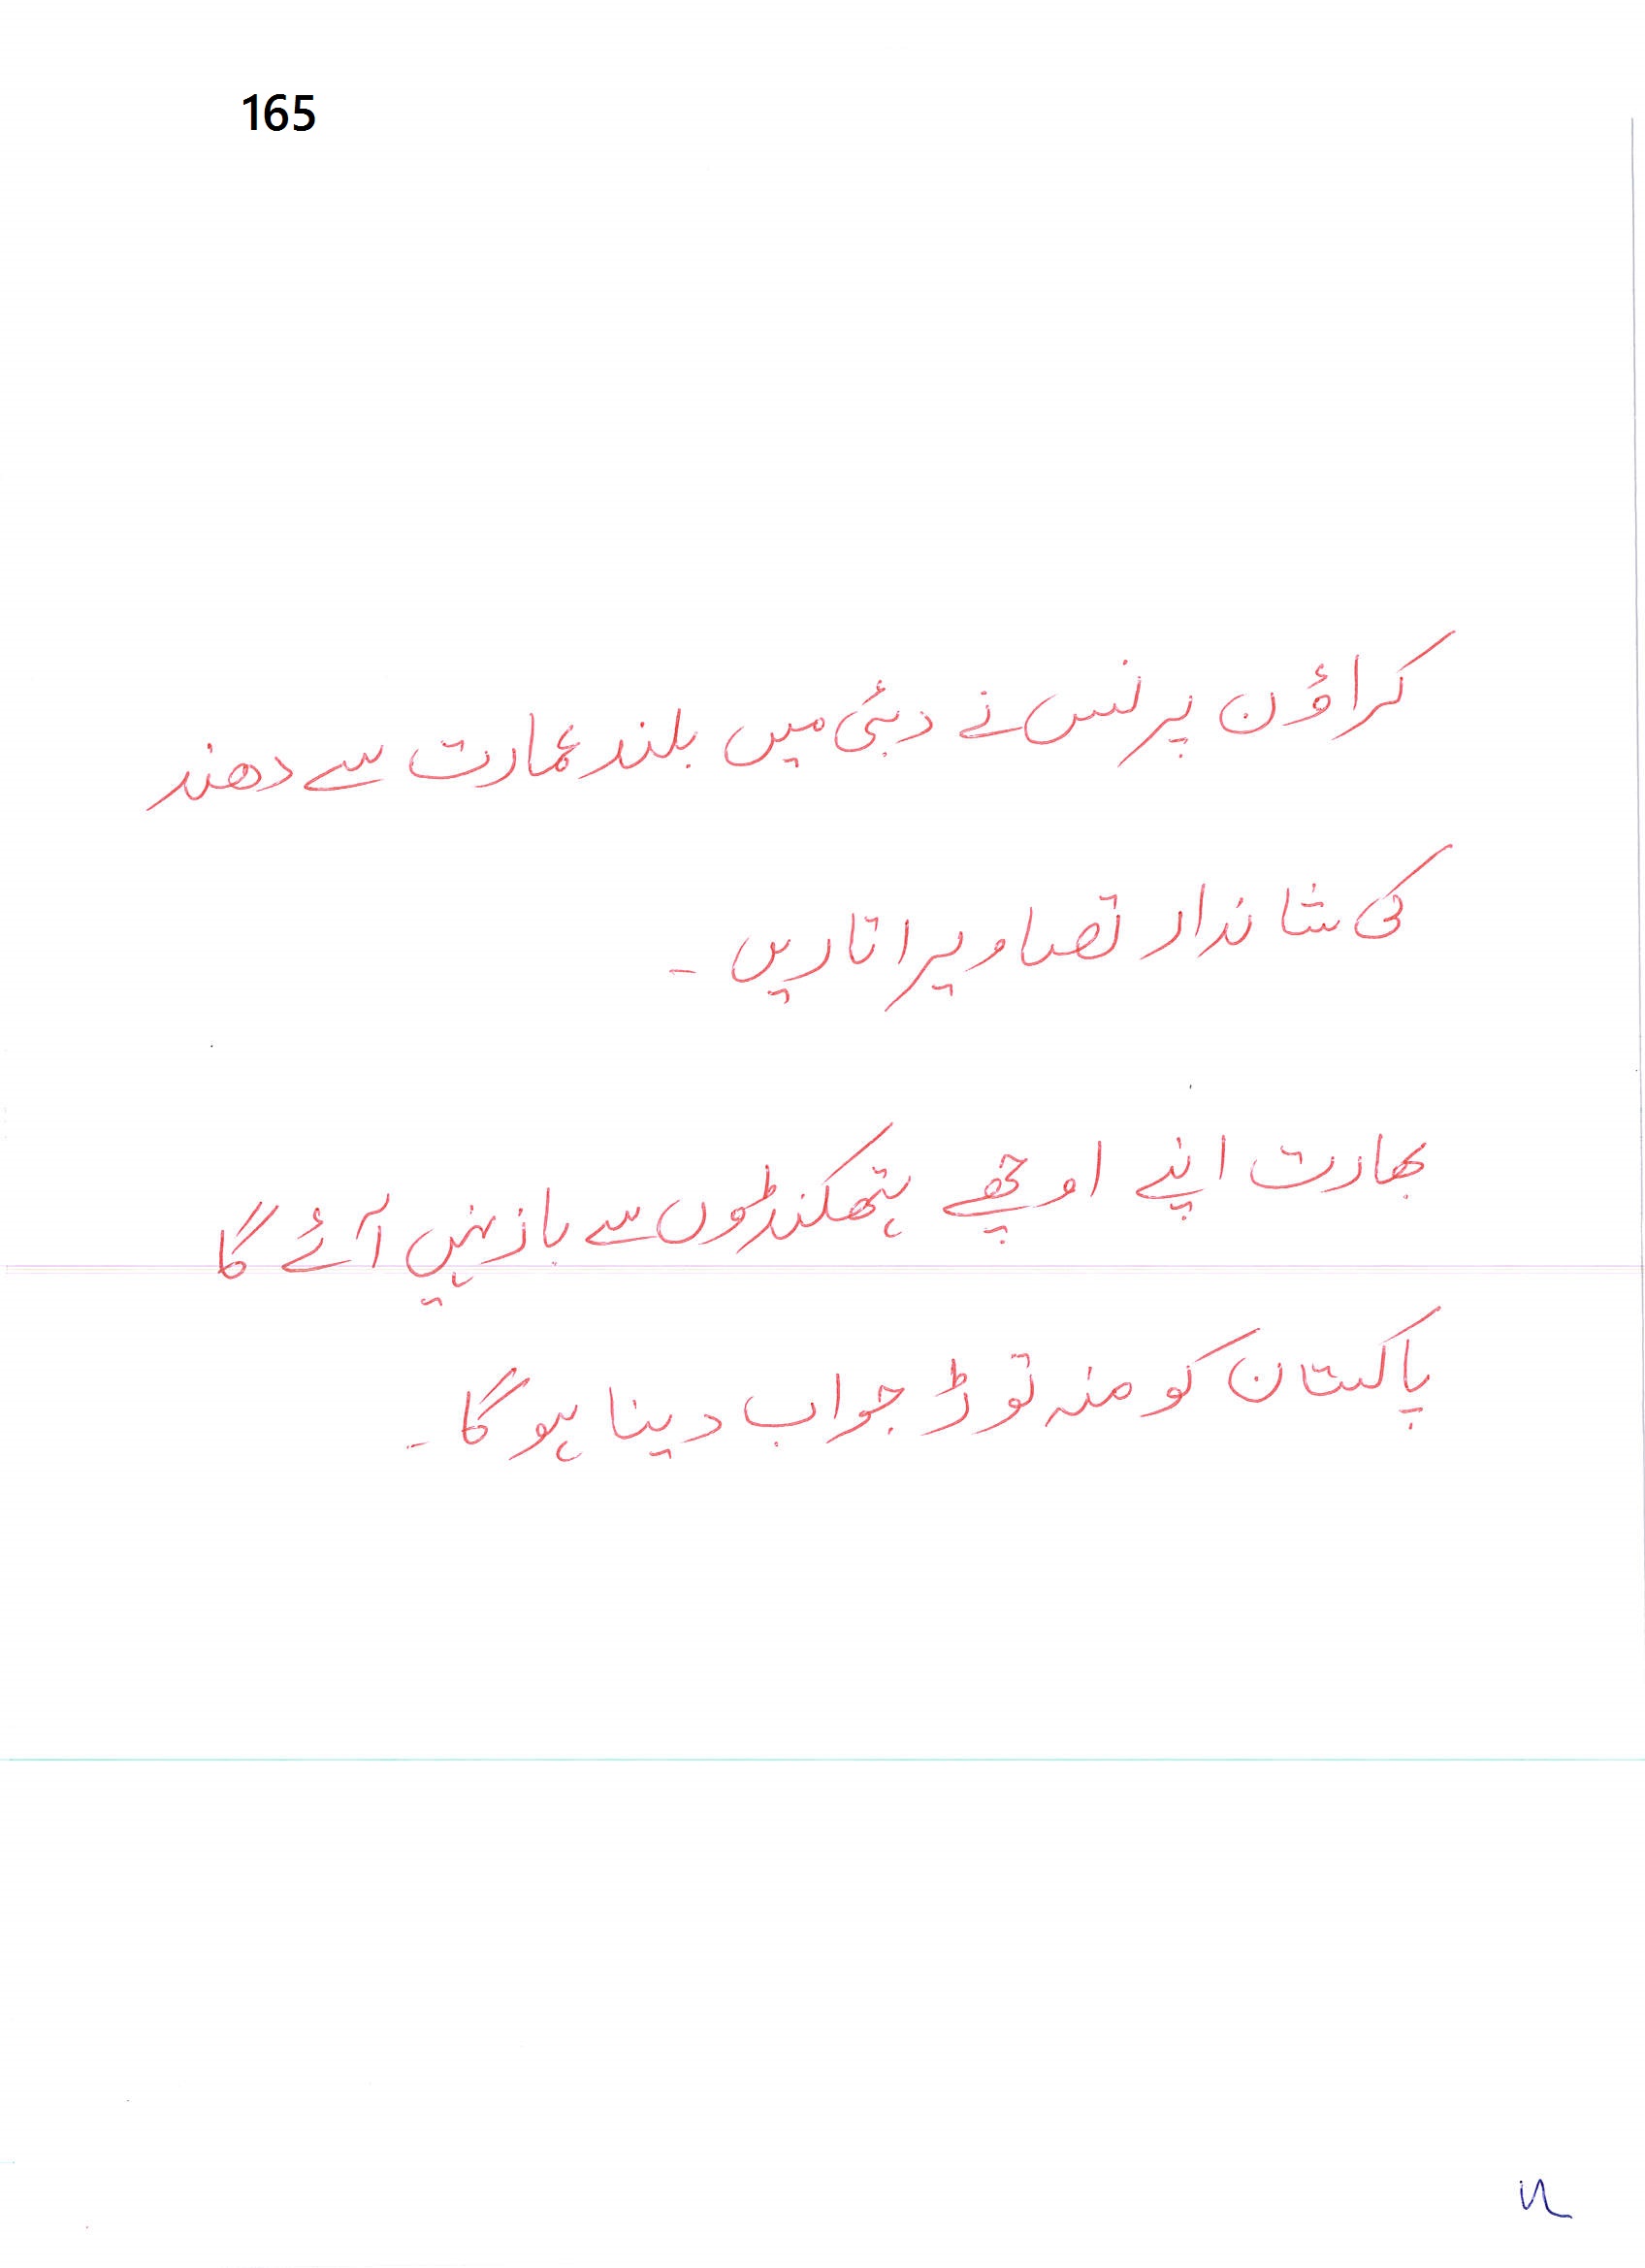 165
کراؤن پرنس نے دبئی میں بلند عمارت سے دھند
کی شاندار تصاویر اتاریں ۔
بھارت اپنے اوچھے ہتھکنڈوں سے باز نہیں آئے گا
پاکستان کو منہ توڑ جواب دینا ہو گا ۔